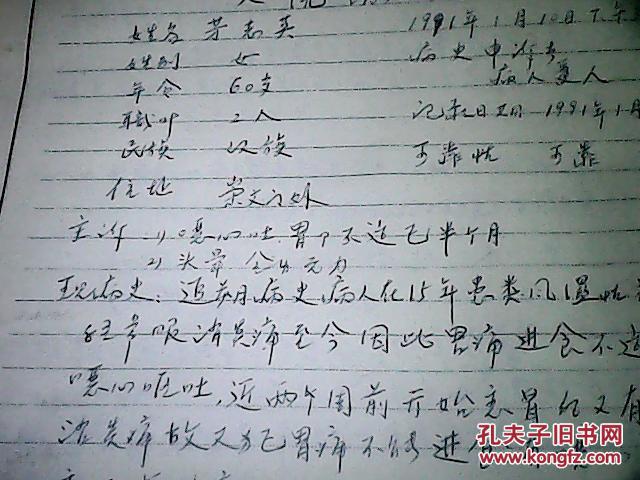 入院
姓名 茅志英 1991年1月10日下午
姓别 女 病史申诉者
年令 60岁 病人爱人
职业 工人 记录日期 1991年1月
民族 汉族 可靠性 可靠
住址 崇文门外
主诉 1) 恶心呕吐 胃口不适已半个月
2) 头晕 全身无力
现病史: 追问病史,病人在15年患类风湿性
经常服消炎痛至今因此胃痛进食不适
恶心呕吐,近两个周前开始患胃 又有
消炎痛故又 胃痛不能进食
孔夫子旧书网
www.kongfz.com